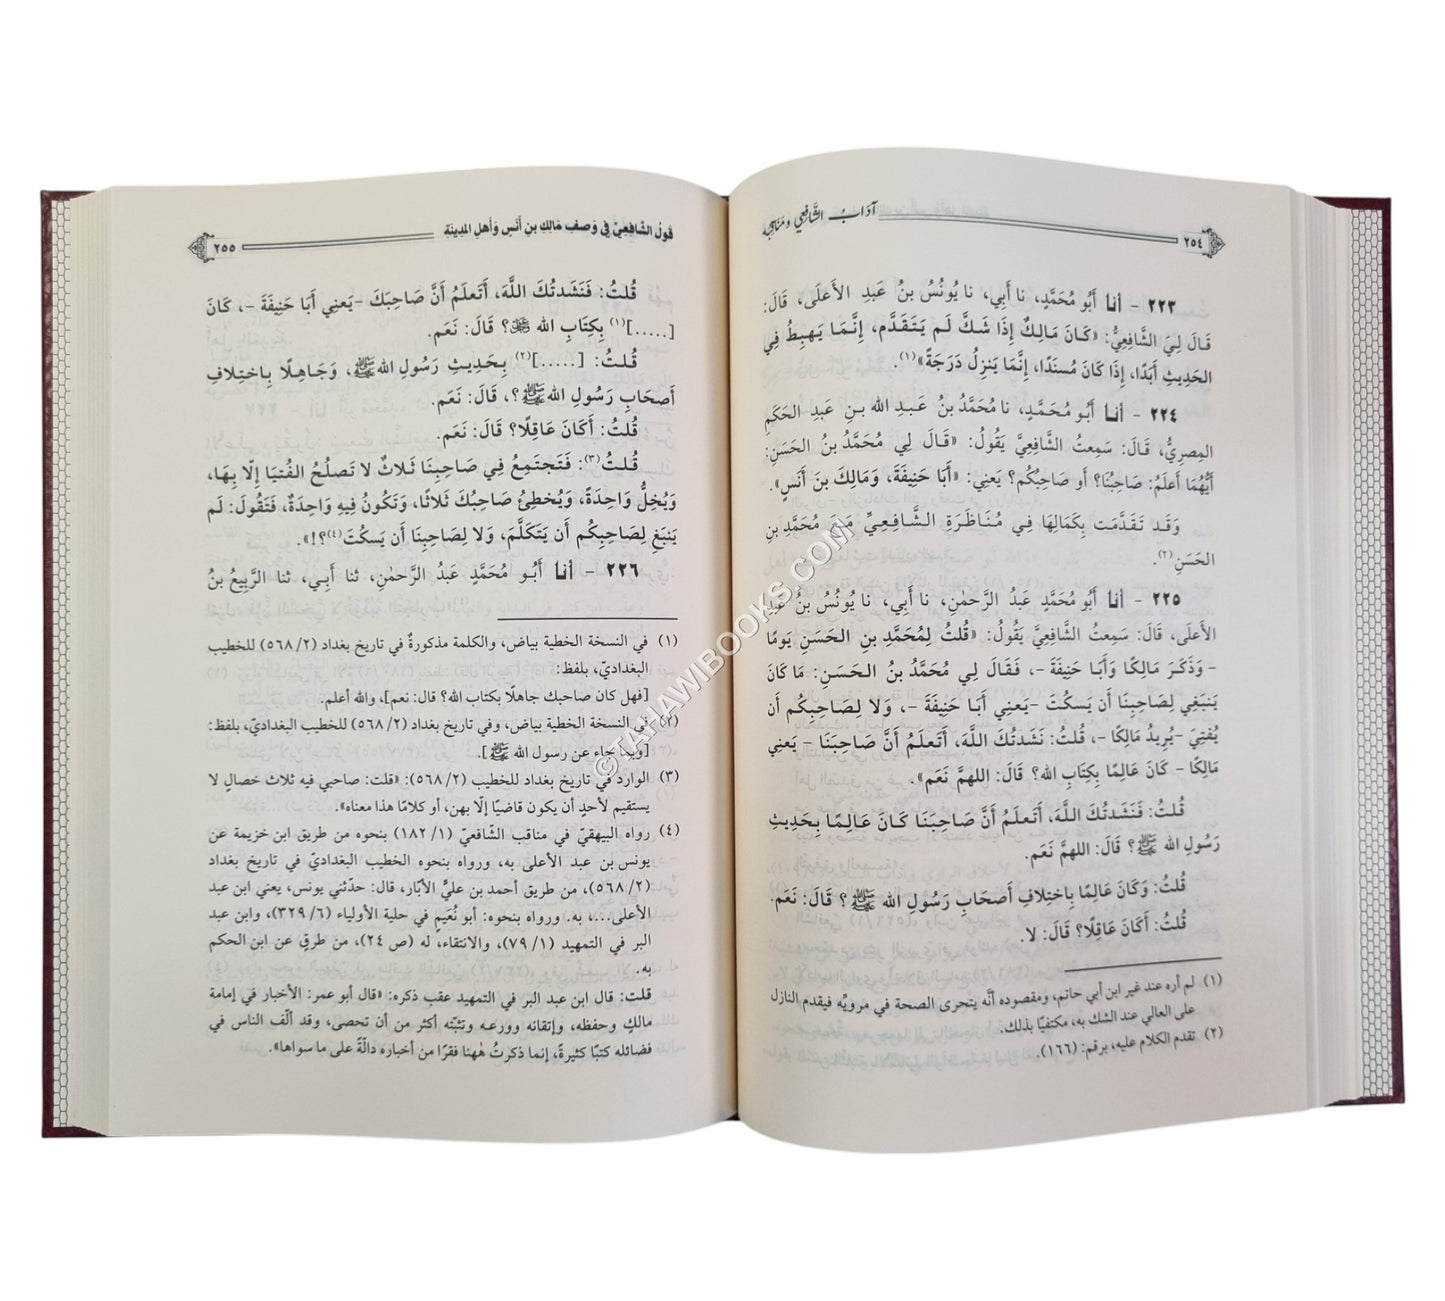 ٢٥٤ آدَابُ الشَّافِعِي وَمَنَاقِبُه
٢٢٣ - أنا أَبُو مُحَمَّدٍ، نا أَبِي، نا يُونُسُ بنُ عَبدِ الأَعلَى، قَالَ:
قَالَ لِيَ الشَّافِعِيُّ: «كَانَ مَالِكٌ إِذَا شَكَّ لَم يَتَقَدَّم، إِنَّمَا يَهبِطُ فِي
الحَدِيثِ أَبَدًا، إِذَا كَانَ مُسنَدًا، إِنَّمَا يَنزِلُ دَرَجَةً»(١).
٢٢٤ - أنا أَبُو مُحَمَّدٍ، نا مُحَمَّدُ بنُ عَبدِ الله بنِ عَبدِ الحَكَمِ
المِصرِيُّ، قَالَ: سَمِعتُ الشَّافِعِيَّ يَقُولُ: «قَالَ لِي مُحَمَّدُ بنُ الحَسَنِ:
أَيُّهُمَا أَعلَمُ: صَاحِبُنَا؟ أو صَاحِبُكُم؟ يَعنِي: «أَبَا حَنِيفَةَ، وَمَالِكَ بنَ أَنَسٍ».
وَقَد تَقَدَّمَت بِكَمَالِهَا فِي مُنَاظَرَةِ الشَّافِعِيِّ مَعَ مُحَمَّدِ بنِ
الحَسَنِ(٢).
٢٢٥ - أنا أَبُو مُحَمَّدٍ عَبدُ الرَّحمَٰنِ، نا أَبِي، نا يُونُسُ بنُ عَبدِ
الأَعلَى، قَالَ: سَمِعتُ الشَّافِعِيَّ يَقُولُ: «قُلتُ لِمُحَمَّدِ بنِ الحَسَنِ يَومًا
- وَذَكَرَ مَالِكًا وَأَبَا حَنِيفَةَ -، فَقَالَ لِي مُحَمَّدُ بنُ الحَسَنِ: مَا كَانَ
يَنبَغِي لِصَاحِبِنَا أَن يَسكُتَ -يَعنِي أَبَا حَنِيفَةَ -، وَلَا لِصَاحِبِكُم أَن
يُفتِيَ -يُرِيدُ مَالِكًا -، قُلتُ: نَشَدتُكَ اللَّهَ، أَتَعلَمُ أَنَّ صَاحِبَنَا - يَعنِي
مَالِكًا - كَانَ عَالِمًا بِكِتَابِ الله؟ قَالَ: اللهمَّ نَعَم».
قُلتُ: فَنَشَدتُكَ اللَّهَ، أَتَعلَمُ أَنَّ صَاحِبَنَا كَانَ عَالِمًا بِحَدِيثِ
رَسُولِ الله ﷺ؟ قَالَ: اللهمَّ نَعَم.
قُلتُ: وَكَانَ عَالِمًا بِاختِلَافِ أَصحَابِ رَسُولِ الله ﷺ؟ قَالَ: نَعَم.
قُلتُ: أَكَانَ عَاقِلًا؟ قَالَ: لا.
(١) لم أره عند غير ابن أبي حاتم، ومقصوده أنَّه يتحرى الصحة في مرويِّه فيقدم النازل
على العالي عند الشك به، مكتفيًا بذلك.
(٢) تقدم الكلام عليه، برقم: (١٦٦).
قَولُ الشَّافِعِيّ فِي وَصفِ مَالِكِ بنِ أَنَسٍ وَأَهلِ المَدِينَةِ ٢٥٥
قُلتُ: فَنَشَدتُكَ اللَّهَ، أَتَعلَمُ أَنَّ صَاحِبَكَ -يَعنِي أَبَا حَنِيفَةَ -، كَانَ
[.....](١) بِكِتَابِ الله ﷻ؟ قَالَ: نَعَم.
قُلتُ: [.....](٢) بِحَدِيثِ رَسُولِ الله ﷺ، وَجَاهِلًا بِاختِلَافِ
أَصحَابِ رَسُولِ الله ﷺ؟، قَالَ: نَعَم.
قُلتُ: أَكَانَ عَاقِلًا؟ قَالَ: نَعَم.
قُلتُ(٣): فَتَجتَمِعُ فِي صَاحِبِنَا ثَلَاثٌ لا تَصلُحُ الفُتيَا إِلّا بِهَا،
وَيُخِلُّ وَاحِدَةً، وَيُخطِئُ صَاحِبُكَ ثَلاثًا، وَتَكُونُ فِيهِ وَاحِدَةٌ، فَتَقُولَ: لَم
يَنبَغِ لِصَاحِبِكُم أَن يَتَكَلَّمَ، وَلا لِصَاحِبِنَا أَن يَسكُتَ(٤)؟!».
٢٢٦ - أنا أَبُو مُحَمَّدٍ عَبدُ الرَّحمَٰنِ، ثنا أَبِي، ثنا الرَّبِيعُ بنُ
(١) في النسخة الخطية بياض، والكلمة مذكورةٌ في تاريخ بغداد (٢/ ٥٦٨) للخطيب
البغداديّ، بلفظ:
[فهل كان صاحبك جاهلًا بكتاب الله؟ قال: نعم]، والله أعلم.
(٢) في النسخة الخطية بياض، وفي تاريخ بغداد (٢/ ٥٦٨) للخطيب البغداديّ، بلفظ:
[وبما جاء عن رسول الله ﷺ].
(٣) الوارد في تاريخ بغداد للخطيب (٢/ ٥٦٨): «قلت: صاحبي فيه ثلاث خصال لا
يستقيم لأحدٍ أن يكون قاضيًا إلّا بهن، أو كلامًا هذا معناه».
(٤) رواه البيهقيّ في مناقب الشّافعيّ (١/ ١٨٢) بنحوه من طريق ابن خزيمة عن
يونس بن عبد الأعلى به، ورواه بنحوه الخطيب البغداديّ في تاريخ بغداد
(٢/ ٥٦٨)، من طريق أحمد بن عليٍّ الأبّار، قال: حدّثني يونس، يعني ابن عبد
الأعلى...، به. ورواه بنحوه: أبو نُعَيمٍ في حلية الأولياء (٦/ ٣٢٩)، وابن عبد
البر في التمهيد (١/ ٧٩)، والانتقاء، له (ص ٢٤)، من طرقٍ عن ابن الحكم
به.
قلت: قال ابن عبد البر في التمهيد عقب ذكره: «قال أبو عمر: الأخبار في إمامة
مالكٍ وحفظه، وإتقانه وورعه وتثبّته أكثر من أن تحصى، وقد ألّف الناس في
فضائله كتبًا كثيرةً، إنما ذكرتُ هٰهنا فقرًا من أخباره دالّةً على ما سواها».
©TAHAWIBOOKS.COM